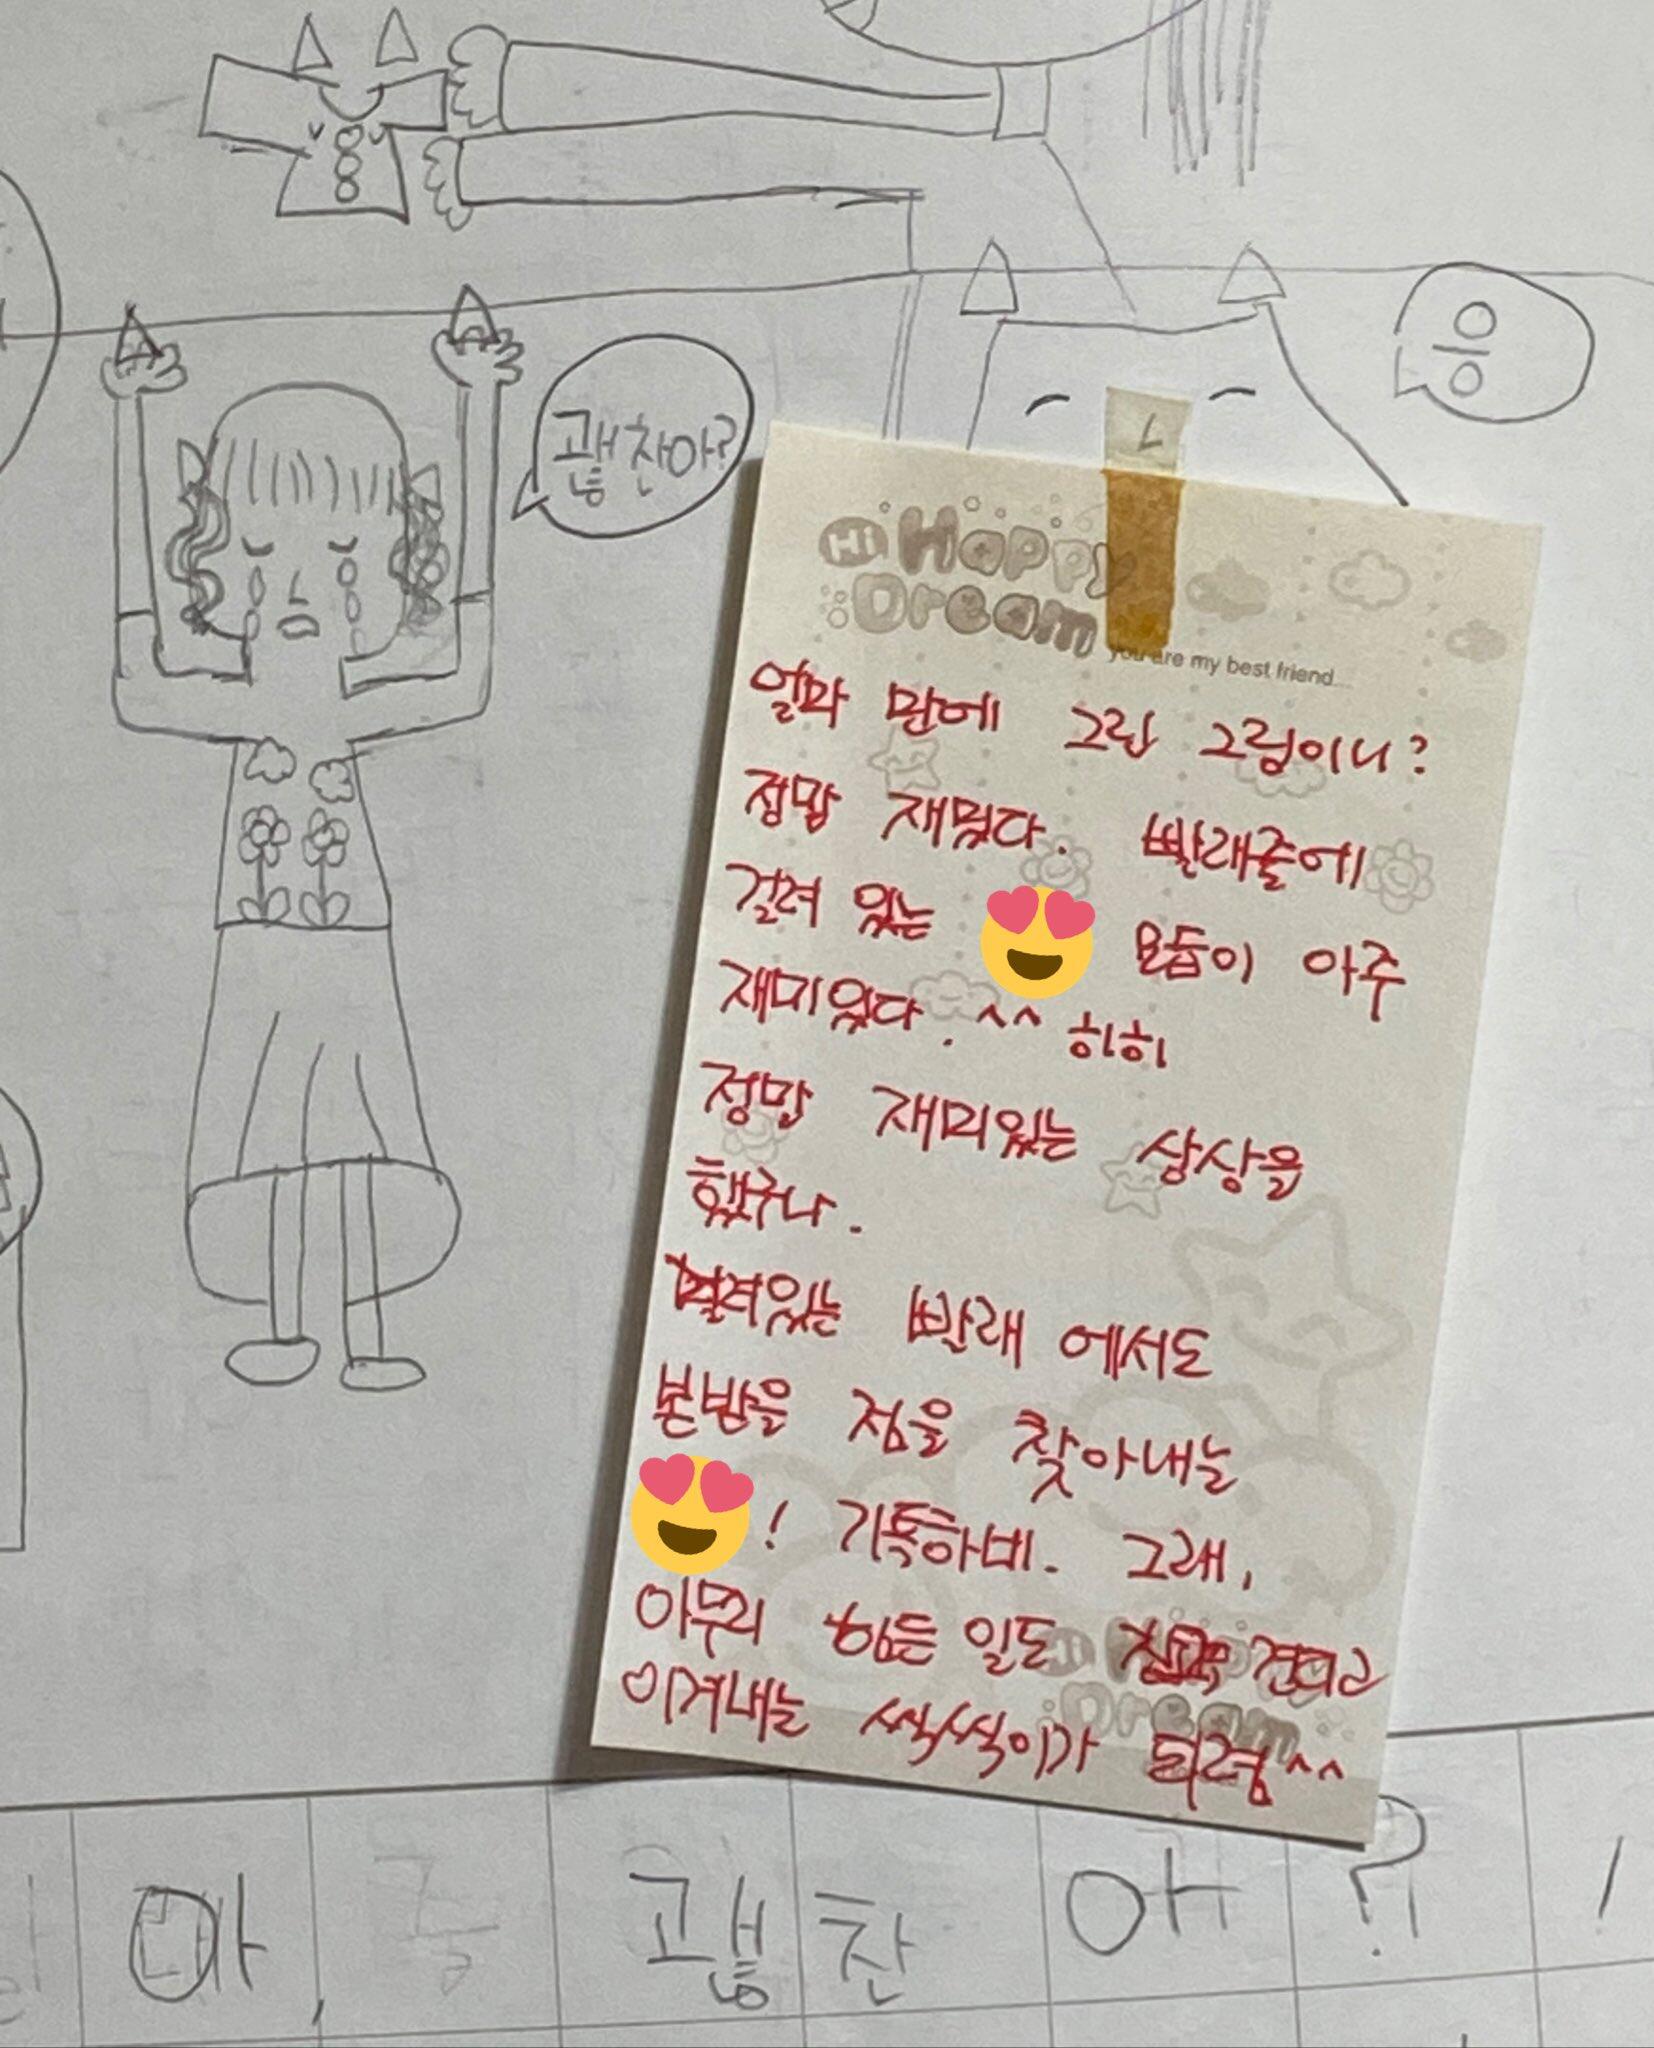 괞찬아?
응
Hi Happy
Dream
you are my best friend...
얼마 만에 그린 그림이니?
정말 재밌다. 빨래줄에
걸려 있는 모습이 아주
재미있다. ^^ 히히
정말 재미있는 상상을
했구나.
걸려있는 빨래에서도
본받을 점을 찾아내는
! 기특하네. 그래,
아무리 힘든 일도 견디고
이겨내는 씩씩이가 되렴^^
Hi
Dream
마, 괞찬아?